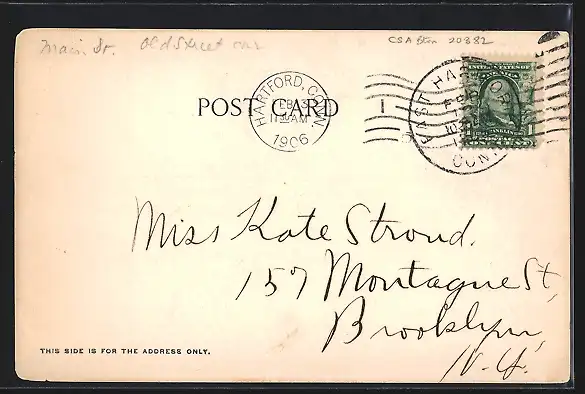 Main St. Old Street car
CSA Btm 20882
POST CARD
HARTFORD, CONN.
FEB 3
11 30 AM
1906
1
EAST HARTFORD
CONN.
UNITED STATES OF
FRANKLIN
Miss Kate Stroud.
157 Montague St,
Brooklyn,
N.Y.
THIS SIDE IS FOR THE ADDRESS ONLY.